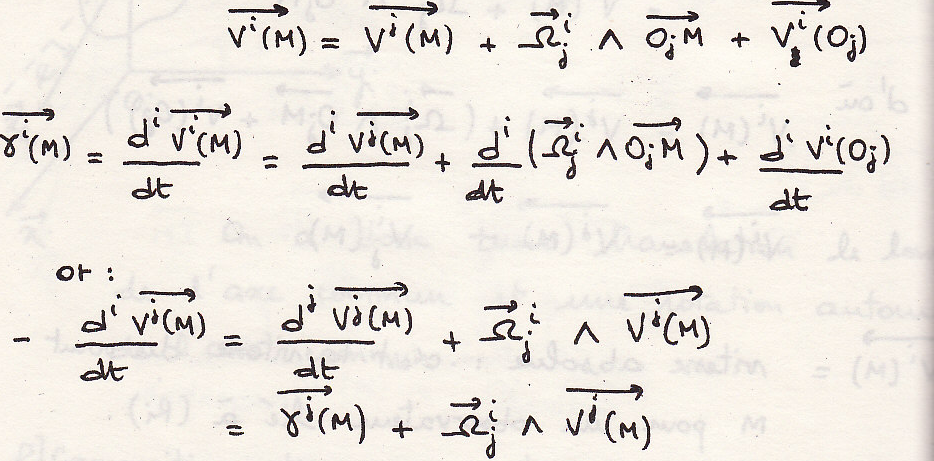 V⃗ⁱ(M) = V⃗ʲ(M) + Ω⃗ⱼⁱ ∧ OⱼM⃗ + V⃗ⱼⁱ(Oⱼ)
γ⃗ⁱ(M) = dⁱ V⃗ⁱ(M) / dt = dⁱ V⃗ʲ(M) / dt + dⁱ / dt (Ω⃗ⱼⁱ ∧ OⱼM⃗) + dⁱ Vⁱ(Oⱼ) / dt
or :
- dⁱ V⃗ʲ(M) / dt = dʲ V⃗ʲ(M) / dt + Ω⃗ⱼⁱ ∧ V⃗ʲ(M)
= γ⃗ʲ(M) + Ω⃗ⱼⁱ ∧ V⃗ʲ(M)